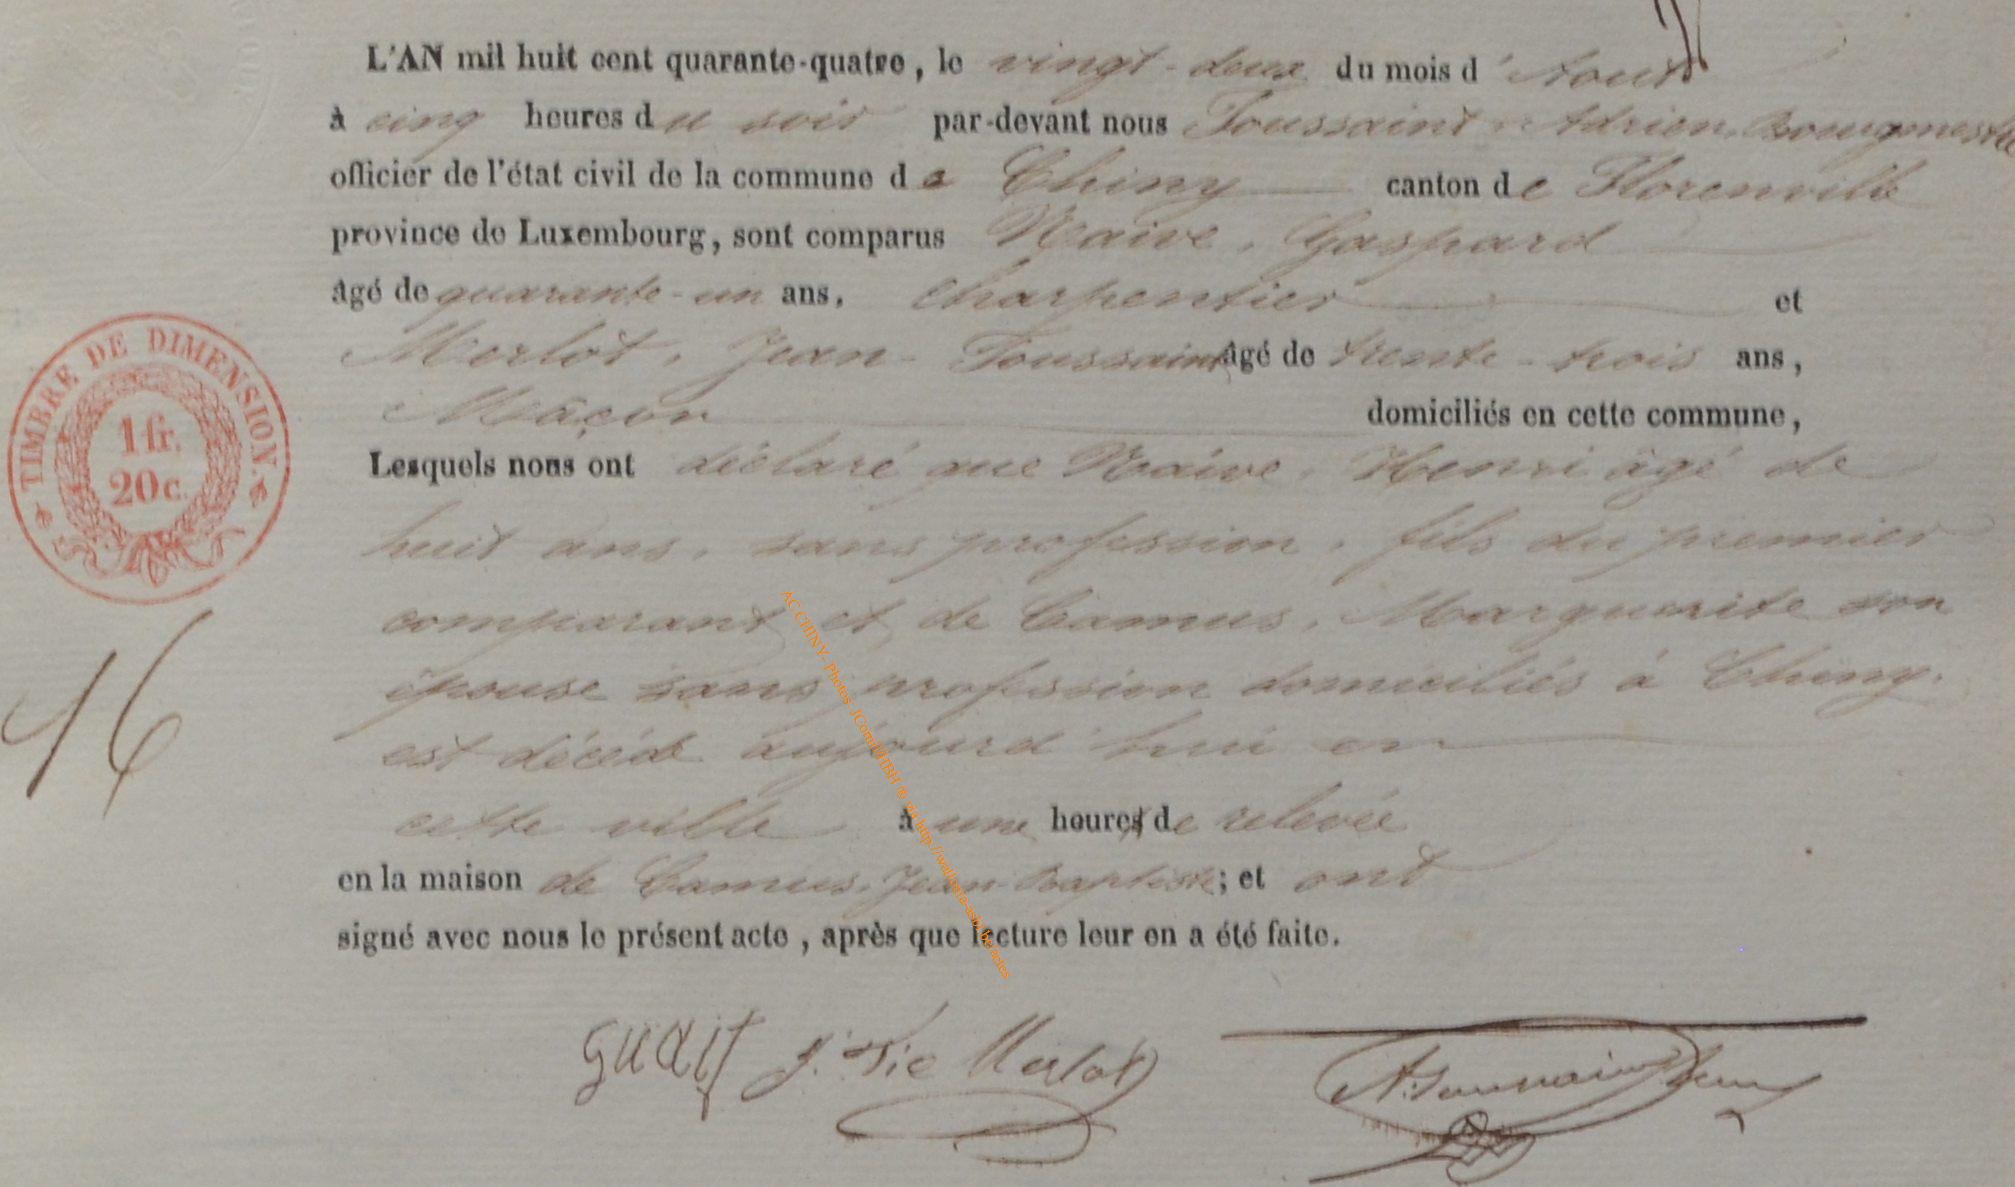 L'AN mil huit cent quarante-quatre, le vingt-deux du mois d'Aout
à cinq heures du soir par-devant nous Toussaint, Adrien, Bourgmestre
officier de l'état civil de la commune de Chiny canton de Florenville
province de Luxembourg, sont comparus Naive, Gaspard
âgé de quarante-un ans, charpentier et
Merlot, Jean-Toussaint âgé de trente-trois ans,
Mâçon domiciliés en cette commune,
Lesquels nous ont déclaré que Naive, Henri âgé de
huit ans, sans profession, fils du premier
comparant et de Camus, Marguerite son
épouse sans profession domiciliés à Chiny.
est décédé aujourd'hui en
cette ville à une heure de relevée
en la maison de Camus, Jean-Baptiste; et ont
signé avec nous le présent acte, après que lecture leur en a été faite.
Merlot
TIMBRE DE DIMENSION.
1 fr.
20 c.
16
AC CHINY - Photos